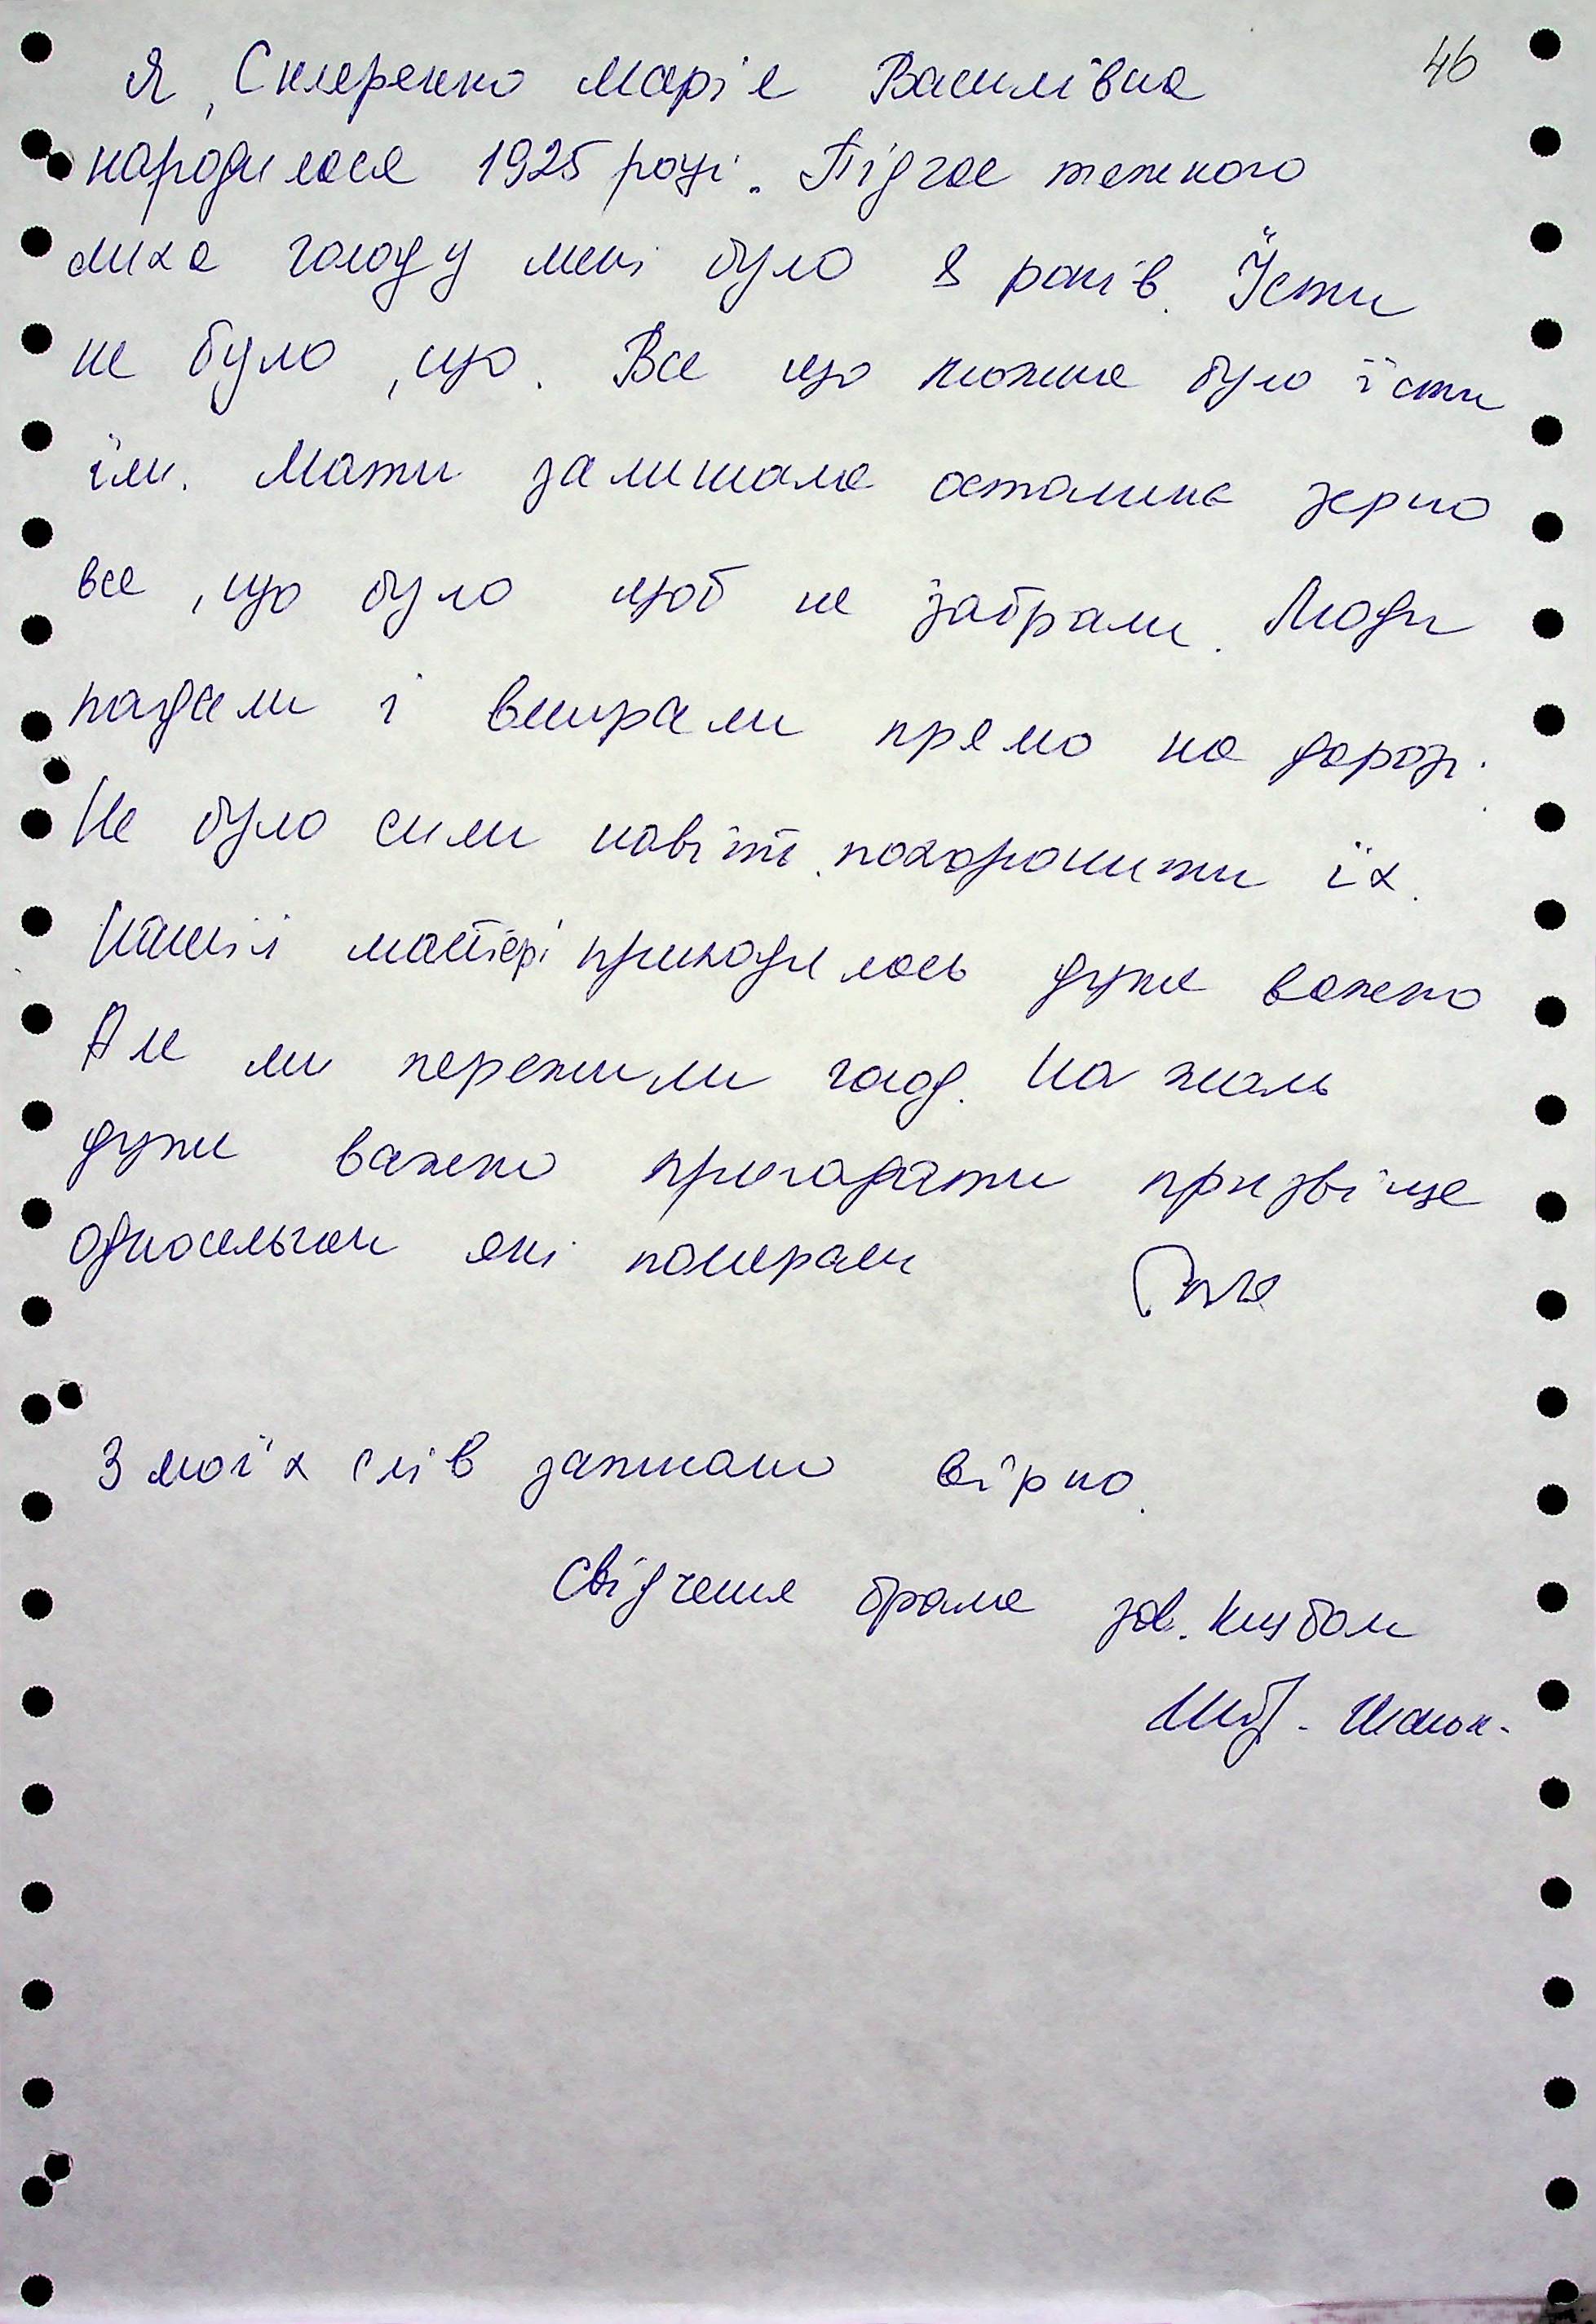 46
Я, Скляренко Марія Василівна
народилася 1925 році. Підчас тяжкого
лиха голоду мені було 8 років. Їсти
не було, що. Все що можна було їсти
їли. Мати залишала останнє зерно
все, що було щоб не забрали. Люди
падали і вмирали прямо на дорозі.
Не було сили навіть похоронити їх.
Нашій матері приходилось дуже важко
Але ми пережили голод. На жаль
дуже важко пригадати призвіще
односельчан які помирали
З моїх слів записано вірно.
Свідчення брала зав. клубом